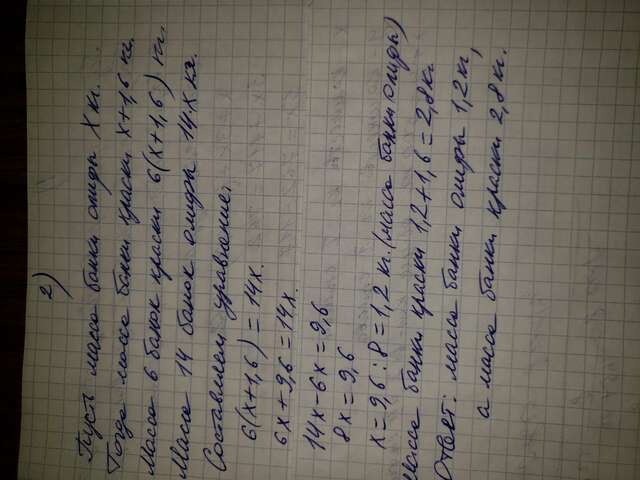 2)
Пусть масса банки олифы x кг.
Тогда масса банки краски x+1,6 кг.
Масса 6 банок краски 6(x+1,6) кг.
Масса 14 банок олифы 14x кг.
Составляем уравнение:
6(x+1,6) = 14x.
6x+9,6 = 14x.
14x-6x=9,6
8x=9,6
x=9,6:8=1,2 кг. (масса банки олифы)
Масса банки краски 1,2+1,6=2,8 кг.
Ответ: масса банки олифы 1,2 кг,
а масса банки краски 2,8 кг.